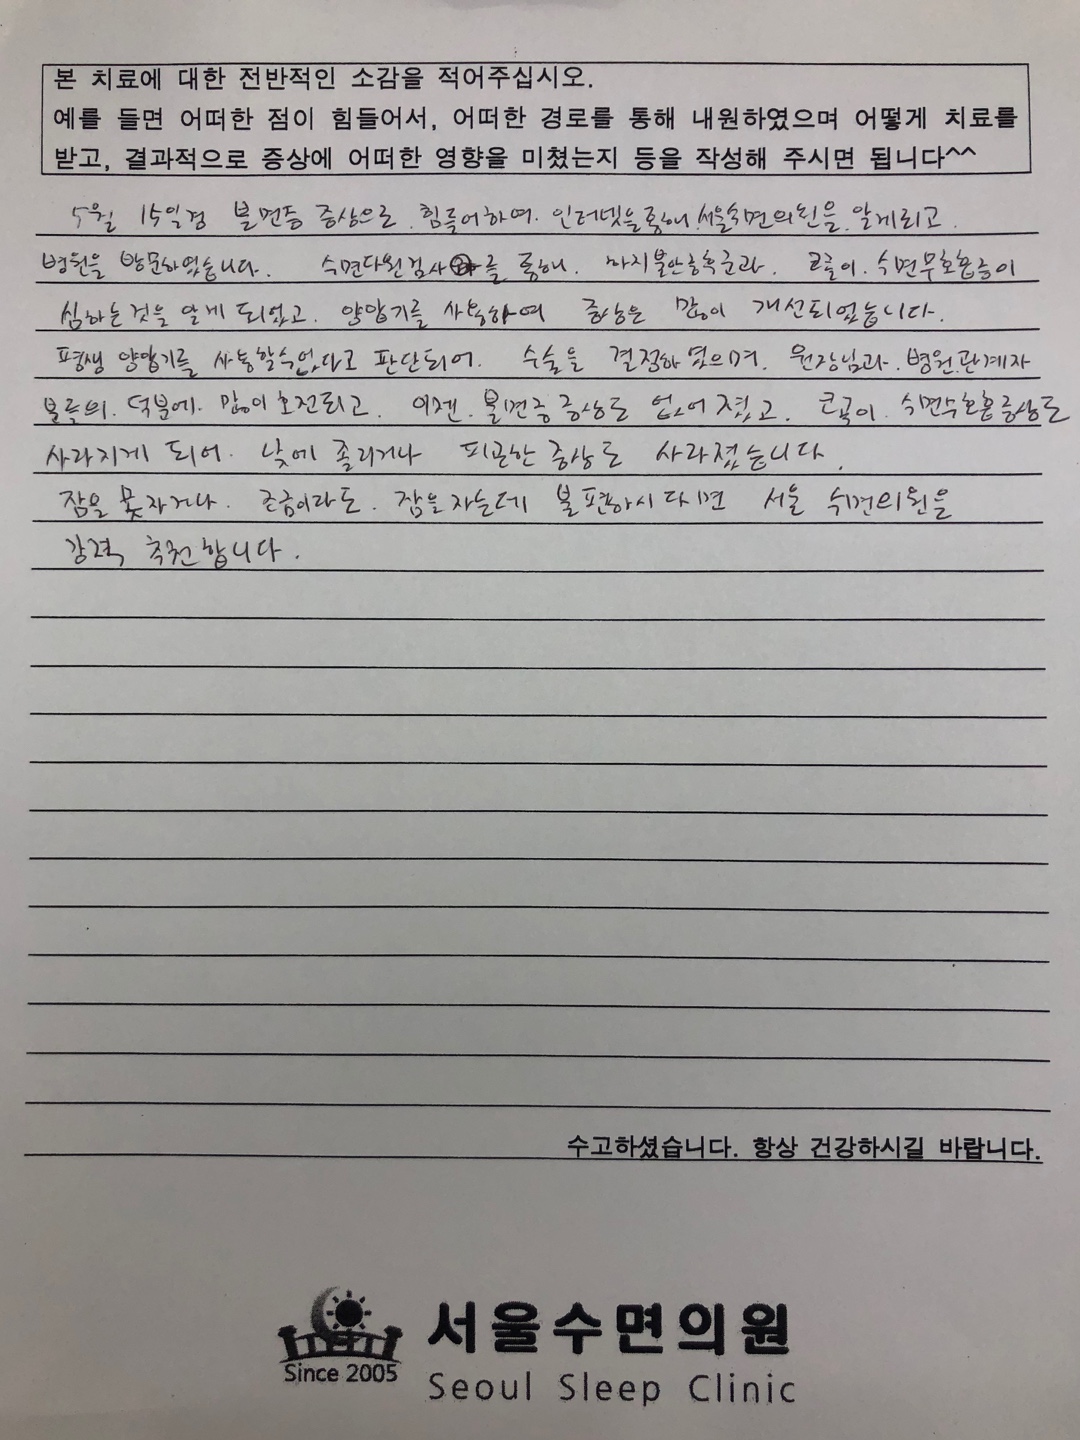 본 치료에 대한 전반적인 소감을 적어주십시오.
예를 들면 어떠한 점이 힘들어서, 어떠한 경로를 통해 내원하였으며 어떻게 치료를
받고, 결과적으로 증상에 어떠한 영향을 미쳤는지 등을 작성해 주시면 됩니다^^
5월 15일경 불면증 증상으로 힘들어하여. 인터넷을 통해 서울수면의원을 알게되고.
병원을 방문하였습니다. 수면다원검사를 통해. 하지불안증후군과. 코골이. 수면무호흡증이
심하는것을 알게 되었고. 양압기를 사용하여 증상은 많이 개선되었습니다.
평생 양압기를 사용할수없다고 판단되어. 수술을 결정하였으며. 원장님과. 병원.관계자
분들의. 덕분에. 많이 호전되고. 이젠. 불면증 증상도 없어졌고. 코골이. 수면무호흡증상도
사라지게 되어. 낮에 졸리거나 피곤한 증상도 사라졌습니다.
잠을 못자거나. 조금이라도. 잠을 자는데 불편하시다면 서울 수면의원을
강력 추천합니다.
수고하셨습니다. 항상 건강하시길 바랍니다.
Since 2005
서울수면의원
Seoul Sleep Clinic